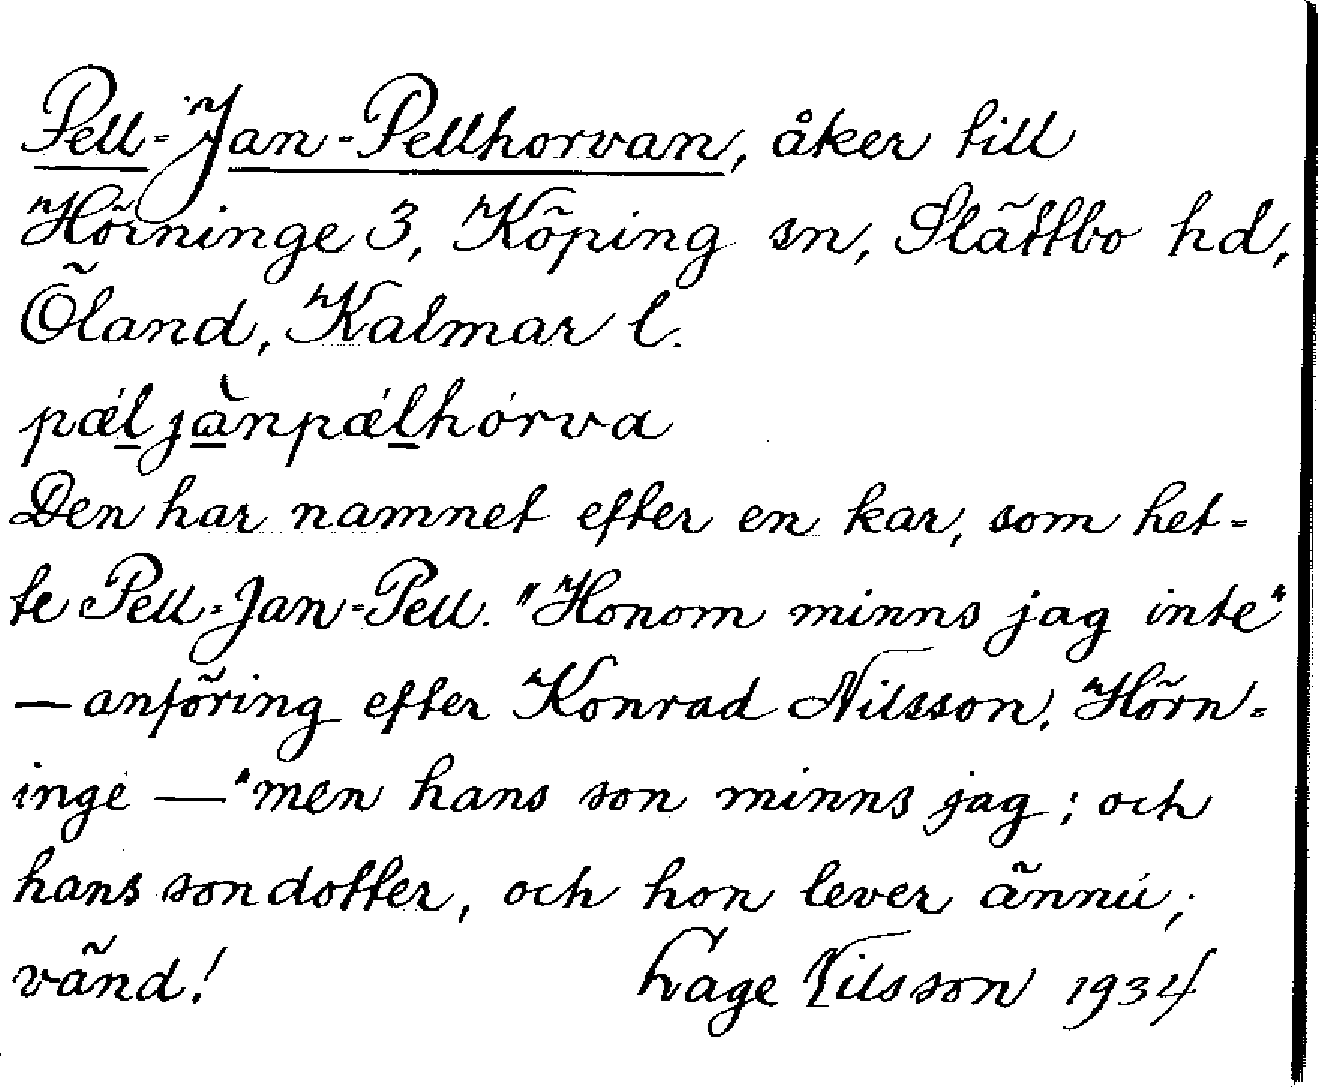 Pell-Jan-Pellhorvan, åker till
Hörninge 3, Köping sn, Slättbo hd,
Öland, Kalmar l.
pǽl jànpǽlhórva
Den har namnet efter en kar, som het-
te Pell-Jan-Pell. "Honom minns jag inte"
— anföring efter Konrad Nilsson, Hörn-
inge — "men hans son minns jag; och
hans sondotter, och hon lever ännu;
vänd! Hage Nilsson 1934